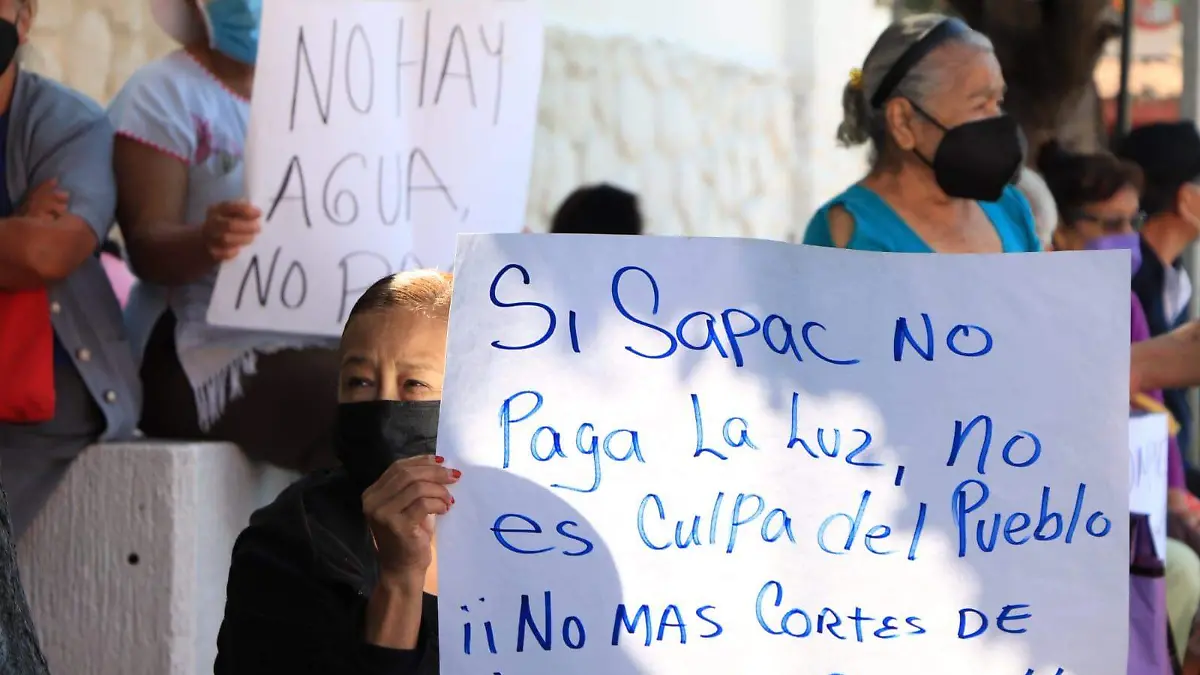 NO HAY
AGUA,
NO
Si Sapac No
Paga La Luz, no
es Culpa del Pueblo
¡¡No MAS CORTES DE